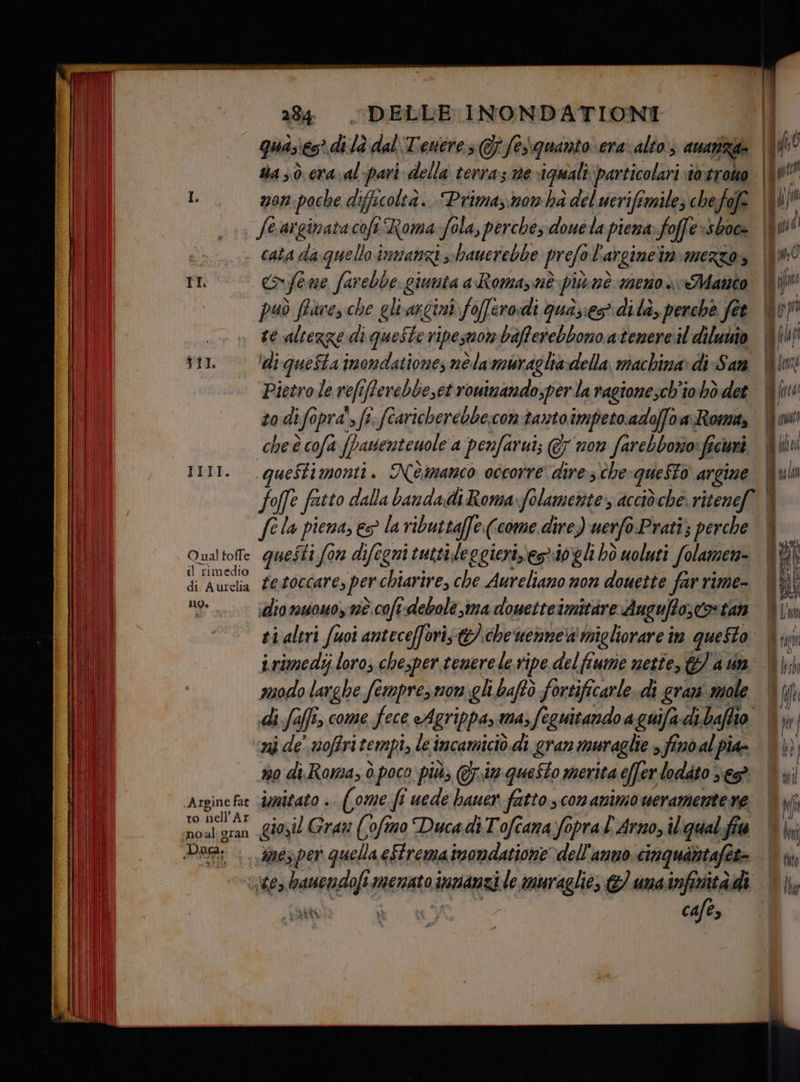 284 DELLE INONDATIONI
quà, es di là dal Teuere, & se, quanto era alto, auanza-
ua, ò era al pari della terra; ne iquali particolari io trouo
I.
non poche difficoltà. Prima, non hà del uerisimile, che fos-
se arginata cosi Roma sola, perche, doue la piena fosse sboc-
cata da quello innanzi, hauerebbe preso l'argine in mezzo,
II.
& sene sarebbe giunta a Roma, nè più nè meno. Manco
può stare, che gli argini fossero di quà, es di là, perchè set
te altezze di queste ripe, non basterebbono a tenere il diluuio
III.
di questa inondatione, nè la muraglia della machina di San
Pietro le resisterebbe, et rouinando, per la ragione, ch'io hò det
to di sopra, si scaricherebbe con tanto impeto adosso a Roma,
che è cosa spauenteuole a pensarui; & non sarebbono sicuri
IIII.
questi monti. Nèmanco occorre dire, che questo argine
fosse fatto dalla banda di Roma solamente, acciò che ritenes
se la piena, es la ributtasse (come dire) uerso Prati; perche
Qual fosse
il rimedio
di Aurelia
no.
questi son disegni tutti leggieri, es io gli hò uoluti solamen-
te toccare, per chiarire, che Aureliano non douette far rime-
dio nuouo, nè cosi debole, ma douette imitare Augusto, & tan
ti altri suoi antecessori, & che uenne a migliorare in questo
i rimedij loro, che, per tenere le ripe del fiume nette, & a un
modo larghe sempre, non gli bastò fortificarle di gran mole
di sassi, come fece Agrippa, ma, seguitando a guisa di bastio
ni de' nostri tempi, le incamiciò di gran muraglie, fino al pia-
no di Roma, ò poco più, & in questo merita esser lodato, es
Argine fat
to nell'Ar
no al gran
Duca.
imitato. Come si uede hauer fatto, con animo ueramente re
gio, il Gran Cosmo Duca di Toscana sopra l'Arno, il qual fiu
me, per quella estrema inondatione dell'anno cinquantaset-
te, hauendosi menato innanzi le muraglie, & una infinità di
case,